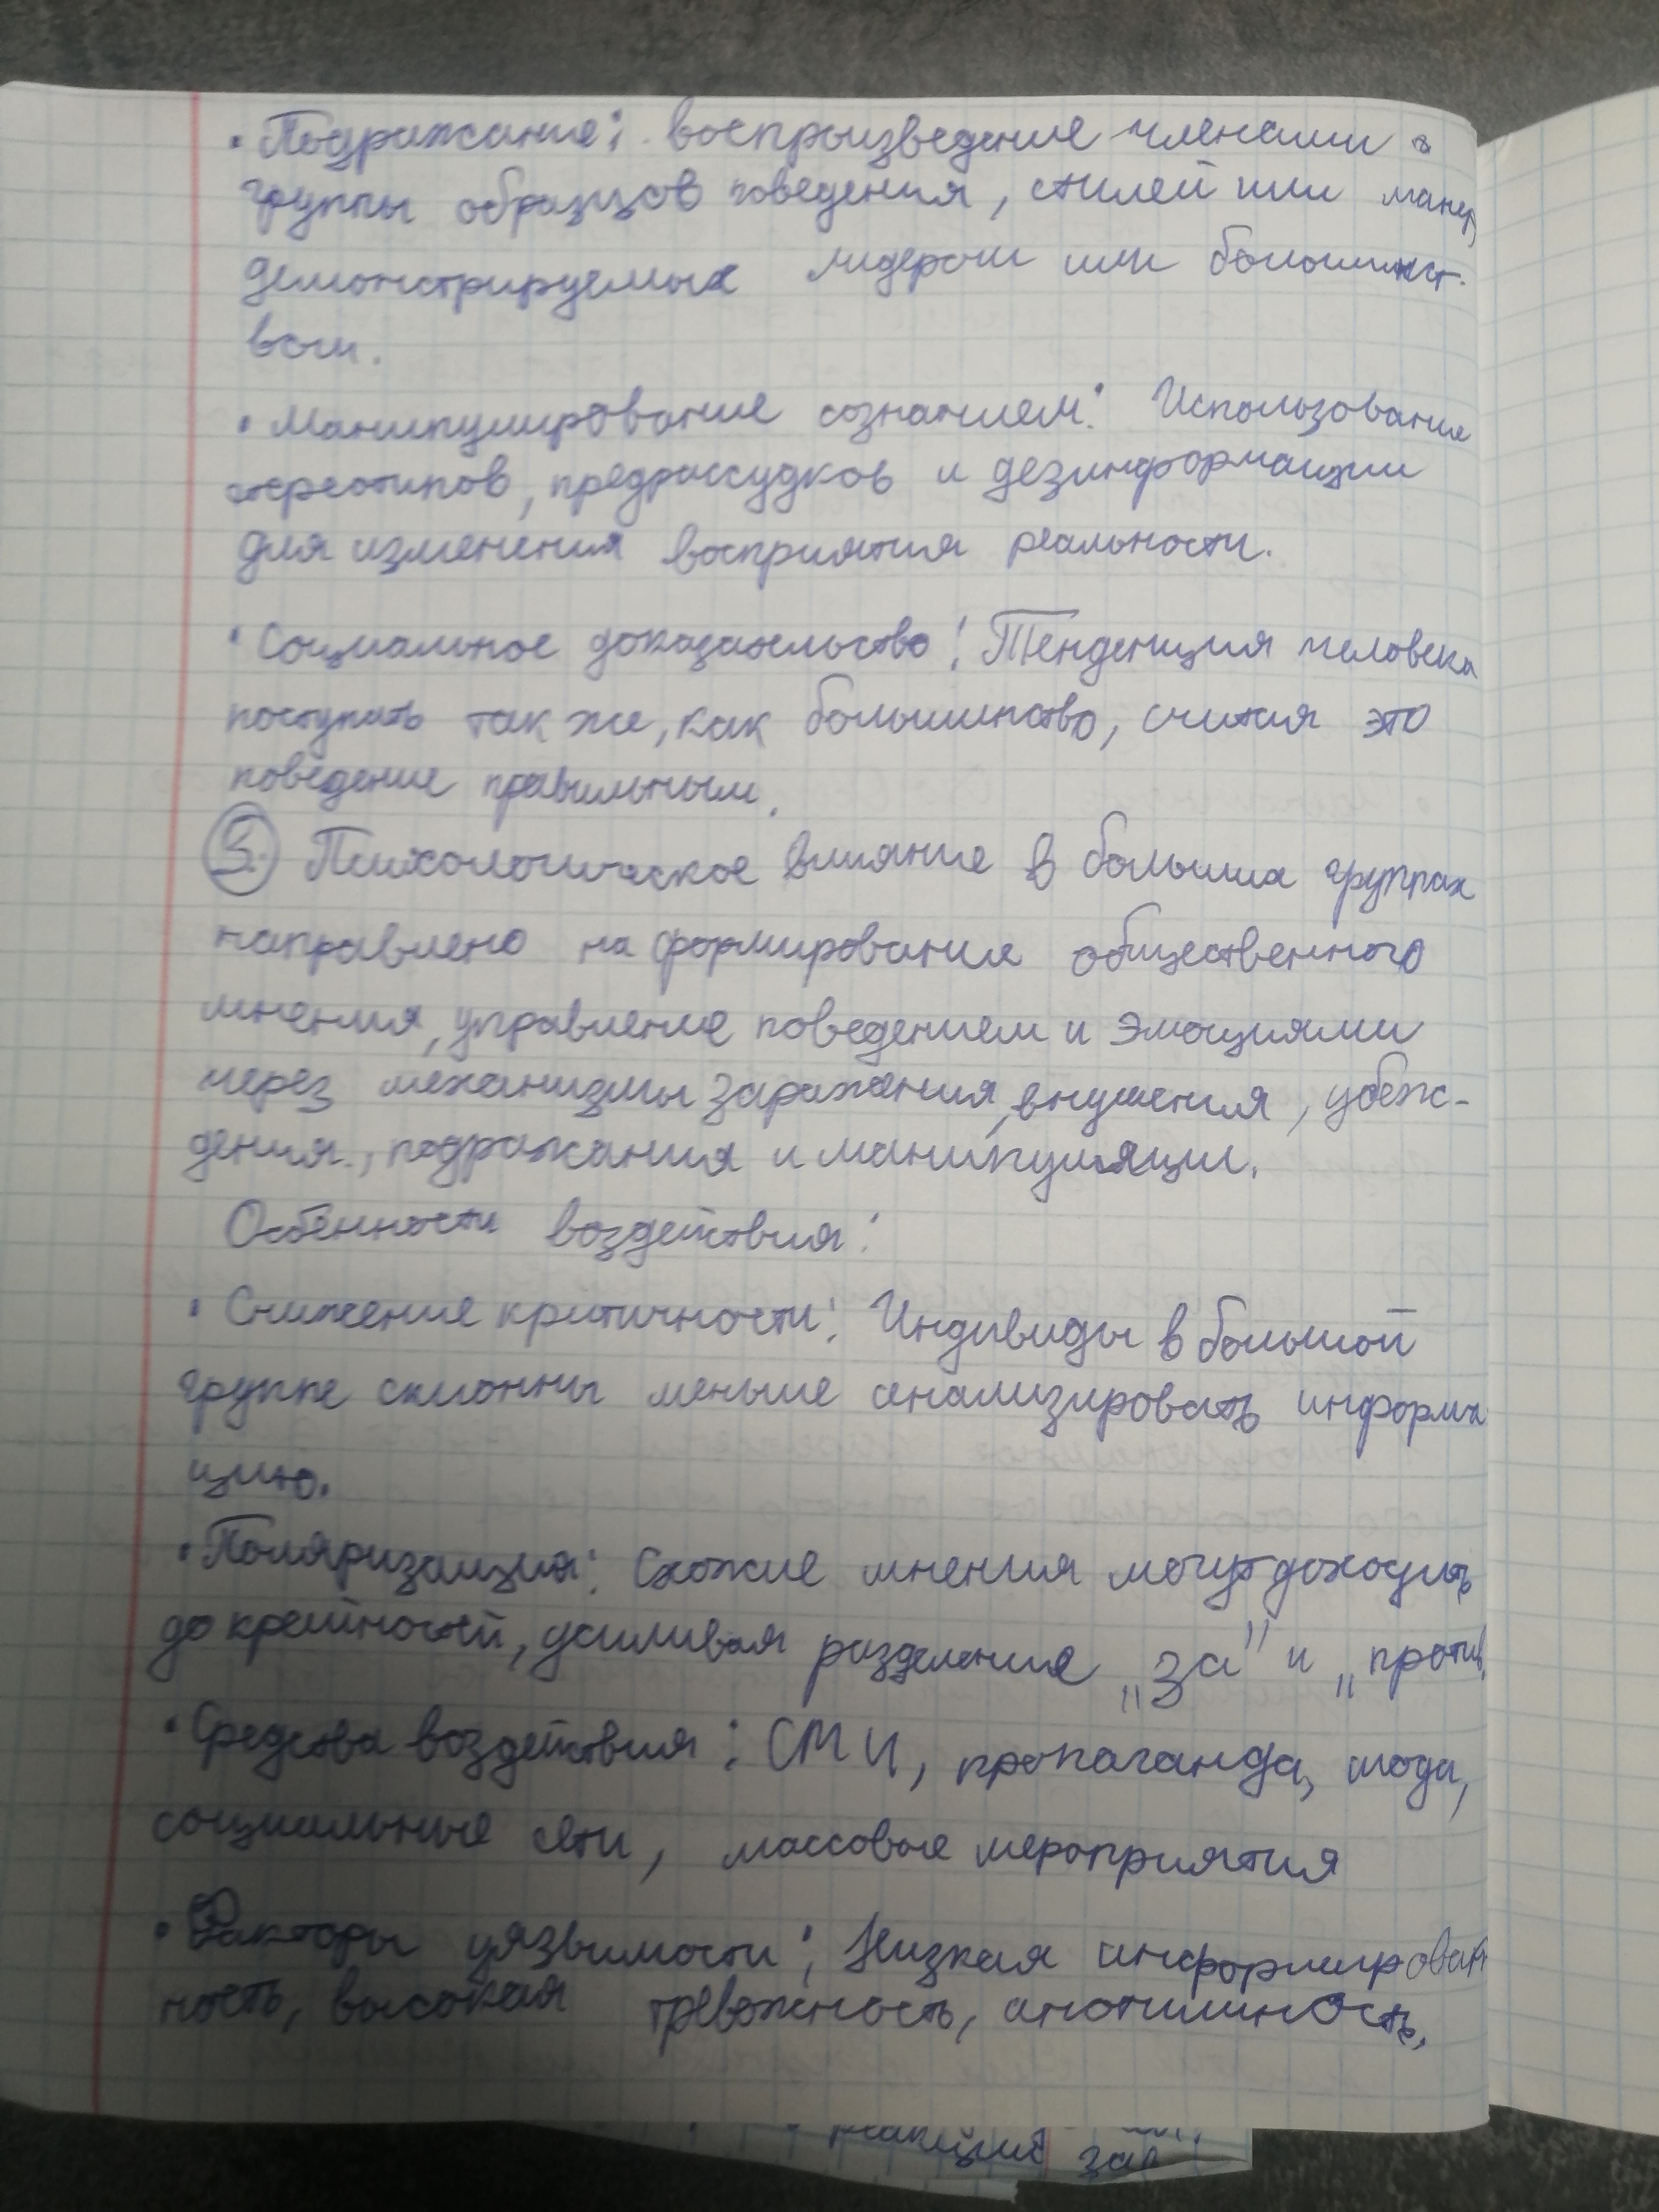 • Подражание: воспроизведение членами
группы образцов поведения, стилей или манер,
демонстрируемых лидером или большинст-
вом.
• Манипулирование сознанием: Использование
стереотипов, предрассудков и дезинформации
для изменения восприятия реальности.
• Социальное доказательство: Тенденция человека
поступать так же, как большинство, считая это
поведение правильным.
3. Психологическое влияние в больших группах
направлено на формирование общественного
мнения, управление поведением и эмоциями
через механизмы заражения, внушения, убеж-
дения, подражания и манипуляции.
Особенности воздействия:
• Снижение критичности: Индивиды в большой
группе склонны меньше анализировать информа
цию.
• Поляризация: Схожие мнения могут доходить
до крайностей, усиливая разделения „за" и „против
• Средства воздействия: СМИ, пропаганда, мода,
социальные сети, массовые мероприятия
• Факторы уязвимости: Низкая информирован
ность, высокая тревожность, анонимность,
зав